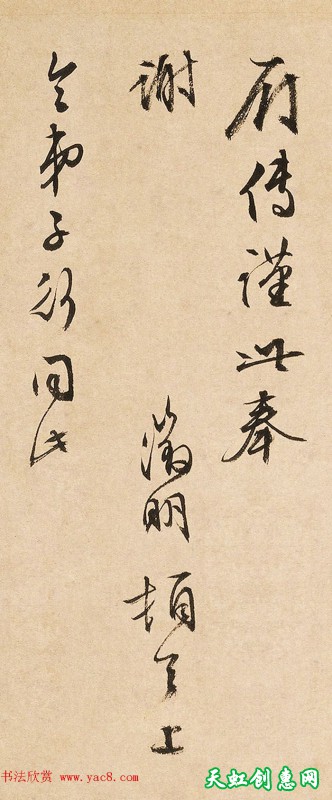 府傅謹此奉
謝
徵明頓首上
令弟子新同此
书法欣赏 www.yac8.com
天虹创惠网